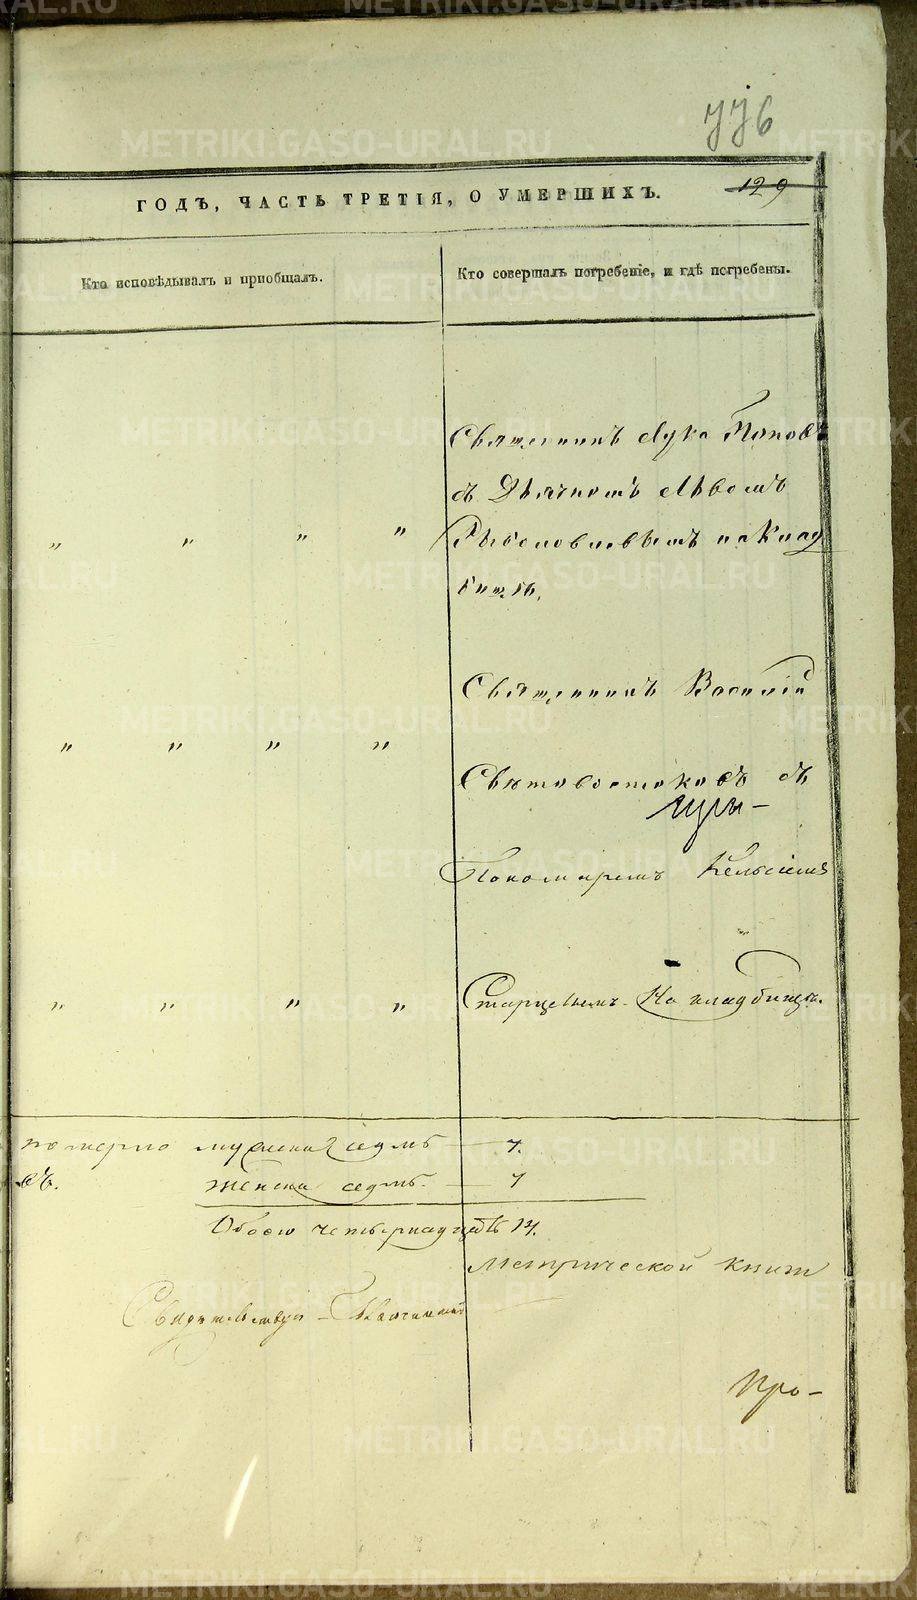 776
ГОДЪ, ЧАСТЬ ТРЕТІЯ, О УМЕРШИХЪ.
129
Кто исповѣдывалъ и пріобщалъ.
Кто совершалъ погребеніе, и гдѣ погребены.
Священникъ Лука Поповъ
съ Дьячкомъ Львомъ
" " " "
на Клад
бищѣ.
Священникъ Василій
" " " "
Святовостоковъ съ
Пономаремъ Кельсіемъ
" " " "
Старцевымъ. На кладбищѣ.
померло мужеска седмь 7.
женска седмь. 7
Обоего четырнадцать 14.
Метрической книги
Свидѣтельствуя
Про-